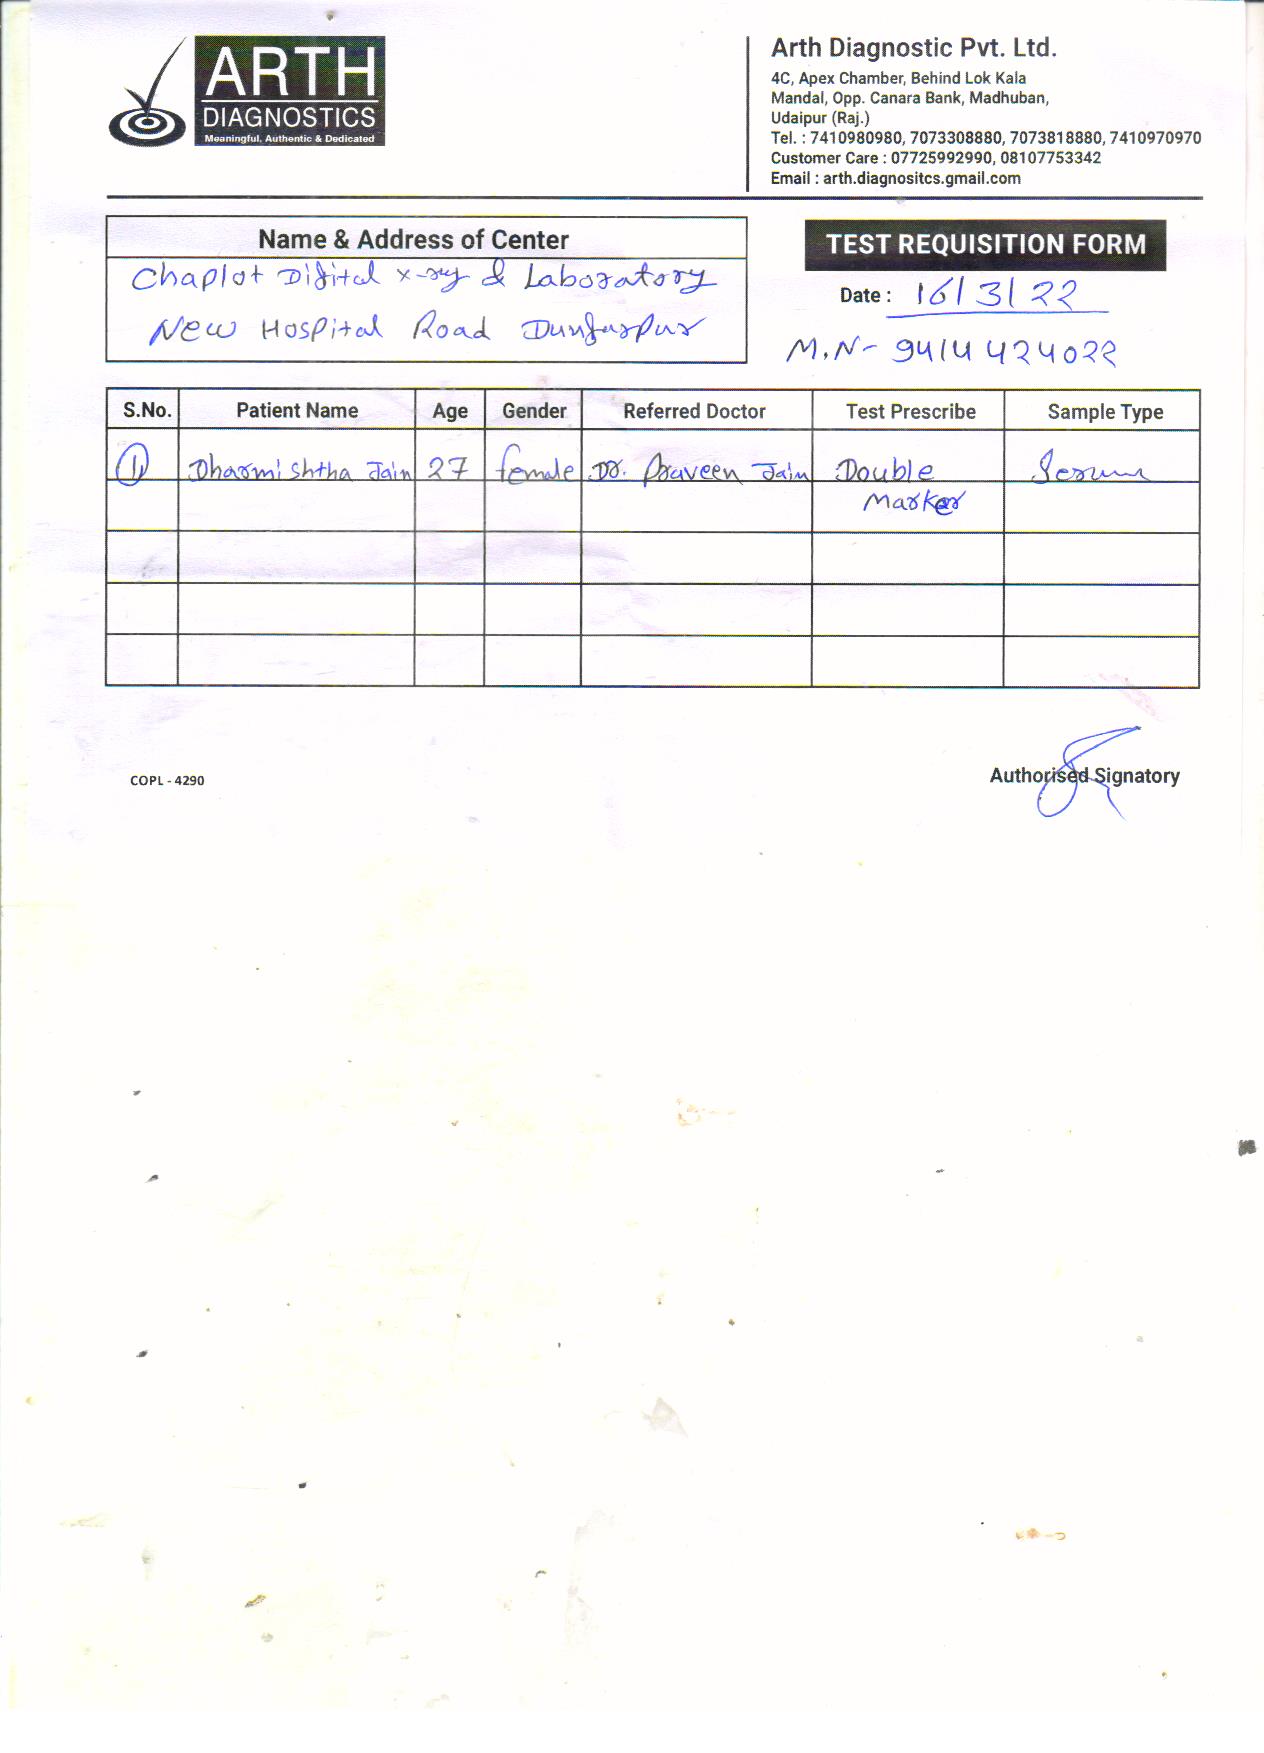 ARTH
DIAGNOSTICS
Meaningful, Authentic & Dedicated
Arth Diagnostic Pvt. Ltd.
4C, Apex Chamber, Behind Lok Kala
Mandal, Opp. Canara Bank, Madhuban,
Udaipur (Raj.)
Tel. : 7410980980, 7073308880, 7073818880, 7410970970
Customer Care : 07725992990, 08107753342
Email : arth.diagnositcs.gmail.com
Name & Address of Center
Chaplot Digital x-ray & Laboratory
New Hospital Road Dungarpur
TEST REQUISITION FORM
Date : 16/3/22
M.N- 9414424022
S.No. Patient Name Age Gender Referred Doctor Test Prescribe Sample Type
1 Dharmishtha Jain 27 female Dr. Praveen Jain Double Serum
Marker
COPL - 4290
Authorised Signatory